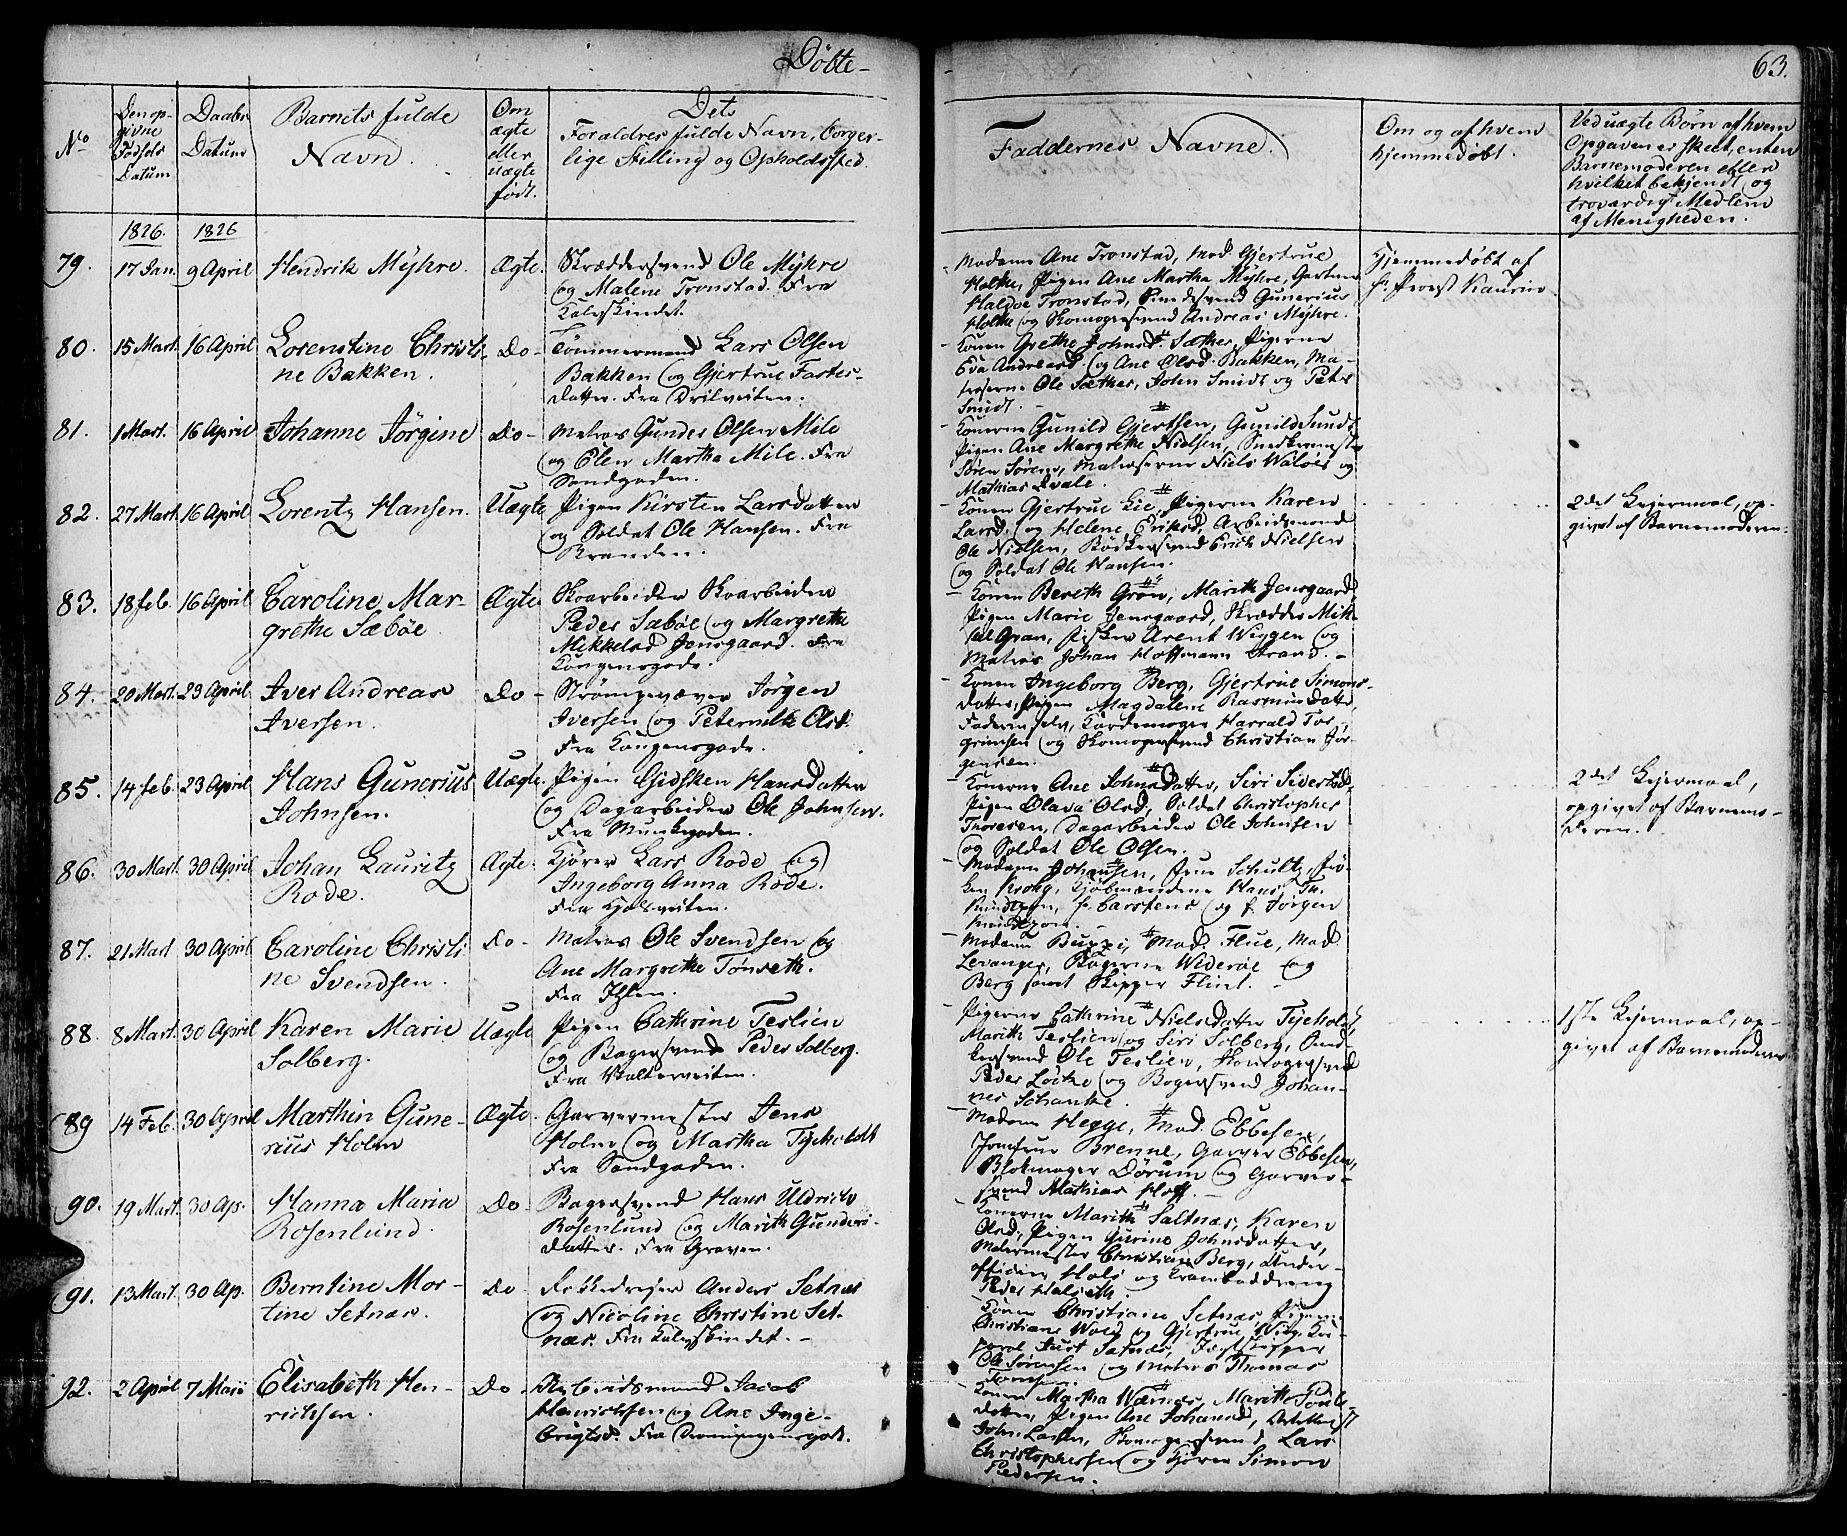 Døbte-
63.
No
Den op-
givne
Fødsels
Datum
Daabs
Datum
Barnets fulde
Navn.
Om
ægte
eller
uægte
født.
Dets
Forældres fulde Navn, borger-
lige Stilling og Opholdssted
Faddernes Navne.
Om og af hvem
hjemmedøbt.
Ved uægte Børn af hvem
Opgaven er skeet, enten
Barnemoderen eller
hvilket bekjendt og
troværdigt Medlem
af Menigheden.
1826. 1826
79. 17 Jan. 9 April Hendrik Myhre. Ægte. Skræddersvend Ole Myhre
og Malene Tronstad. Fra
Kalvskindet.
Madame Ane Tronstad, Mad. Gjertrue
Holtke, Pigen Ane Martha Myhre, Gartner
Haldoe Tronstad, Gunerius
Holtke og Skomagersvend Andreas Myhre.
Hjemmedøbt af
Hr Provst Kaurin
80. 15 Mart. 16 April Lorentine Christi-
ne Bakken. Do- Tømmermand Lars Olsen
Bakken og Gjertrue Faster-
datter. Fra Drilveiten.
Konen Grethe Johnsd. Sæther, Pigerne
Eva Andreasd og Ane Olsd. Bakken, Ma-
troserne Ole Sæther, John Smidt og Peter
Smidt.
81. 1 Mart. 16 April Johanne Jørgine Do- Matros Gunder Olsen Mile
og Elen Martha Mile. Fra
Sandgaden.
Konerne Gunild Gjertsen, Gunild Sundt
Pigen Ane Margrethe Nielsen,
Søren Sørens, Matroserne Niels Waløes og
Mathias Dvale.
82. 27 Mart. 16 April Lorentz Hansen. Uægte Pigen Kirsten Larsdatter
og Soldat Ole Hansen. Fra
Konen Gjertrue Lie, Pigerne Karen
Larsd. og Helene Eriksd, Arbeidsmand
Ole Nielsen, Bødkersvend Erich Nielsen
og Soldat Ole Hansen.
2det Leiermaal, op-
givet af Barnemoderen.
83. 18 feb. 16 April Caroline Mar-
grethe Sæbøe Ægte
Peder Sæbøe og Margrethe
Mikkelsd Jensgaard. Fra
Kongensgade.
Konen Bereth Grøn, Marith Jensgaard,
Pigen Marie Jensgaard, Skrædder Mik-
kel Gran, Fisker Arent Wiggen og
Matros Johan Hoffmann Strand.
84. 20 Mart. 23 April Iver Andreas
Iversen. Do- Strømpevæver Jørgen
Iversen og Peternille Olsd.
Fra Kongensgade.
Konen Ingeborg Berg, Gjertrue Simons-
datter, Pigen Magdalene Rasmusdatter,
Faderen selv, Kardemager Harrald Tor-
grimsen og Skomagersvend Christian Jør-
gensen.
85. 14 feb. 23 April Hans Gunerius
Johnsen. Uægte. Pigen Gidsken Hansdatter
og Dagarbeider Ole Johnsen.
Fra Munkegaden.
Konerne Ane Johnsdatter, Siri Sivertsd,
Pigen Olava Olsd, Soldat Christopher
Thoresen, Dagarbeider Ole Johnsen
og Soldat Ole Olsen.
2det Leiermaal,
opgivet af Barnemo-
deren.
86. 30 Mart. 30 April Johan Lauritz
Rode. Ægte. Kjører Lars Rode og
Ingeborg Anna Rode.
Fra
Madame Johansen, Schultz, Frø-
ken Krohg, Kjøbmændene Hans Th.
Knudtzon, Hr Carstens og Hr Jørgen
Knudtzon.
87. 21 Mart 30 April Caroline Christi-
ne Svendsen. Do- Matros Ole Svendsen og
Ane Margrethe Tønseth.
Fra Ihlen.
Madame Mad. Flue, Mad.
Levanger, Wederøe og
Berg samt Skipper Flint.
88. 8 Mart. 30 April Karen Marie
Solberg. Uægte Pigen Cathrine Teslien
og Bagersvend Peder Solberg.
Fra
Pigerne Cathrine Nielsdatter Tyeholt,
Marith Teslien og Siri Solberg,
Ole Teslien, Skomagersvend
Peder Løcke og Bagersvend Johan-
nes Schanke.
1ste Leiermaal, op-
givet af Barnemoderen
89 14 Feb. 30 April Marthin Gune-
rius Holm Ægte. Garvermester Jens
Holm og Martha Tyeholdt
Fra Sandgaden.
Madame Hegge, Mad. Ebbesen,
Jomfrue Brenne, Garver Ebbesen,
Blokmager Dørum og Garver-
svend Mathias Hoff.
90. 19 Mart. 30 Ap. Hanna Maria
Rosenlund. Do- Bagersvend Hans Uldrich
Rosenlund og Marith Gunderi-
datter. Fra Graven.
Konerne Marith Saltnæs, Karen
Olsd, Pigen Gurine Johnsdatter,
Malermester Christian Berg, Under-
officier Hals og
Peder Halseth.
91. 13 Mart. 30 Ap. Berntine Mor-
tine Setnæs. Do Anders Setnæs
og Nicoline Christine Set-
næs. Fra Kalvskindet.
Konen Christiane Setnæs, Pigerne
Christiane Woeg og Gjertrue Wiig,
Just Satnæs,
Ole Sørensen og Matros Thomas
92. 2 April 7 Maii Elisabeth Hen-
richsen. Do- Arbeidsmand Jacob
Henrichsen og Ane Inge-
brigtsd. Fra Dronningensgade.
Konen Martha Wærnes, Marith Pouls-
datter, Pigen Ane Johansd,
John Larsen, Skomagersvend Lars
Christophersen og Kjører Simon
Pedersen.